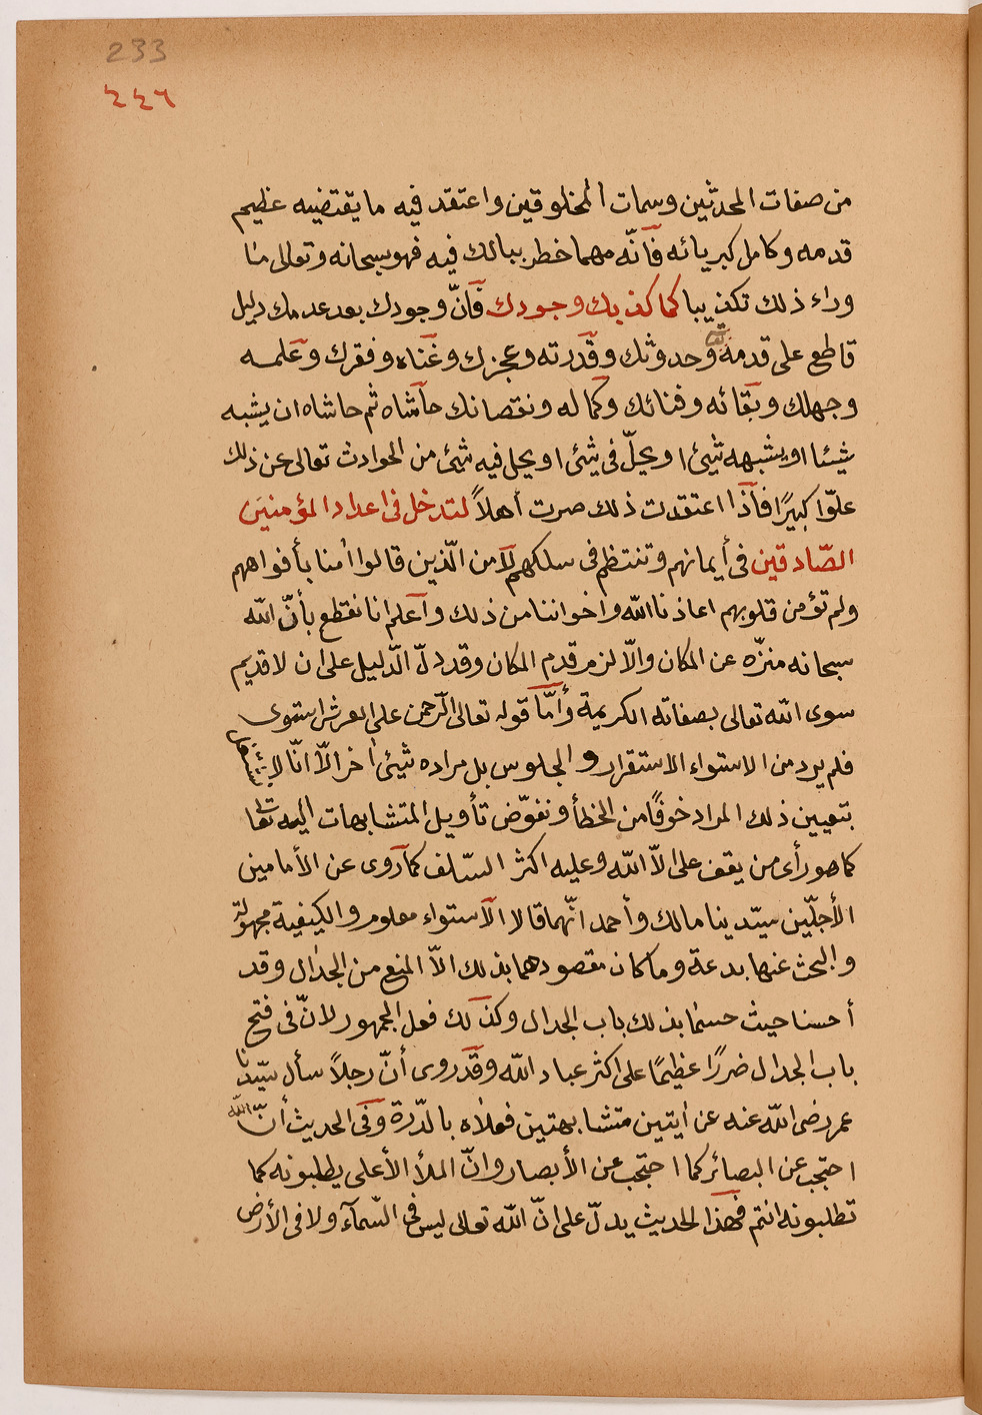 233
٤٤٦
من صفات المحدثين وسمات المخلوقين واعتقد فيه ما يقتضيه عظيم
قدمه وكامل كبريائه فانّه مهما خطر ببالك فيه فهو سبحانه وتعالى من
وراء ذلك تكذيبا كما كذبك وجودك فانّ وجودك بعد عدمك دليل
قاطع على قدمه وحدوثك وقدرته وعجزك وغناه وفقرك وعلمه
وجهلك وبقائه وفنائك وكماله ونقصانك حاشاه ثم حاشاه ان يشبه
شيئا او يشبهه شيئ او يحلّ فى شيئ او يحل فيه شيئ من الحوادث تعالى عن ذلك
علوّا كبيرًا فاذا اعتقدت ذلك صرت أهلاً لتدخل فى اعداد المؤمنين
الصّادقين فى أيمانهم وتنتظم فى سلكهم لا من الّذين قالوا أمنا بأفواههم
ولم تؤمن قلوبهم اعاذنا الله واخواننا من ذلك واعلم انا نقطع بأنّ الله
سبحانه منزّه عن المكان والّا لزم قدم المكان وقد دلّ الدّليل على ان لا قديم
سوى الله تعالى بصفاته الكريمة وأمّا قوله تعالى الرحمن على العرش استوى
فلم يرد من الاستواء الاستقرار والجلوس بل مراده شيئ أخر الّا انّا لا نشتغل
بتعيين ذلك المراد خوفًا من الخطأ ونفوّض تأويل المتشابهات اليه تعالى
كما هو رأى من يقف على الاّ الله وعليه اكثر السّلف كما روى عن الأمامين
الأجلّين سيّدينا مالك وأحمد انّهما قالا الاستواء معلوم والكيفية مجهولة
والبحث عنها بدعة وما كان مقصودهما بذلك الاّ المنع من الجدال وقد
أحسنا حيث حسما بذلك باب الجدال وكذلك فعل الجمهور لانّ فى فتح
باب الجدال ضررًا عظيمًا على اكثر عباد الله وقد روى أنّ رجلاً سأل سيّدنا
عمر رضى الله عنه عن أيتين متشابهتين فعلاه بالدّرة وفى الحديث أنّ الله
احتجب عن البصائر كما احتجب عن الأبصار وانّ الملأ الأعلى يطلبونه كما
تطلبونه انتم فهذا الحديث يدلّ على انّ الله تعالى ليس فى السّمآء ولا فى الأرض